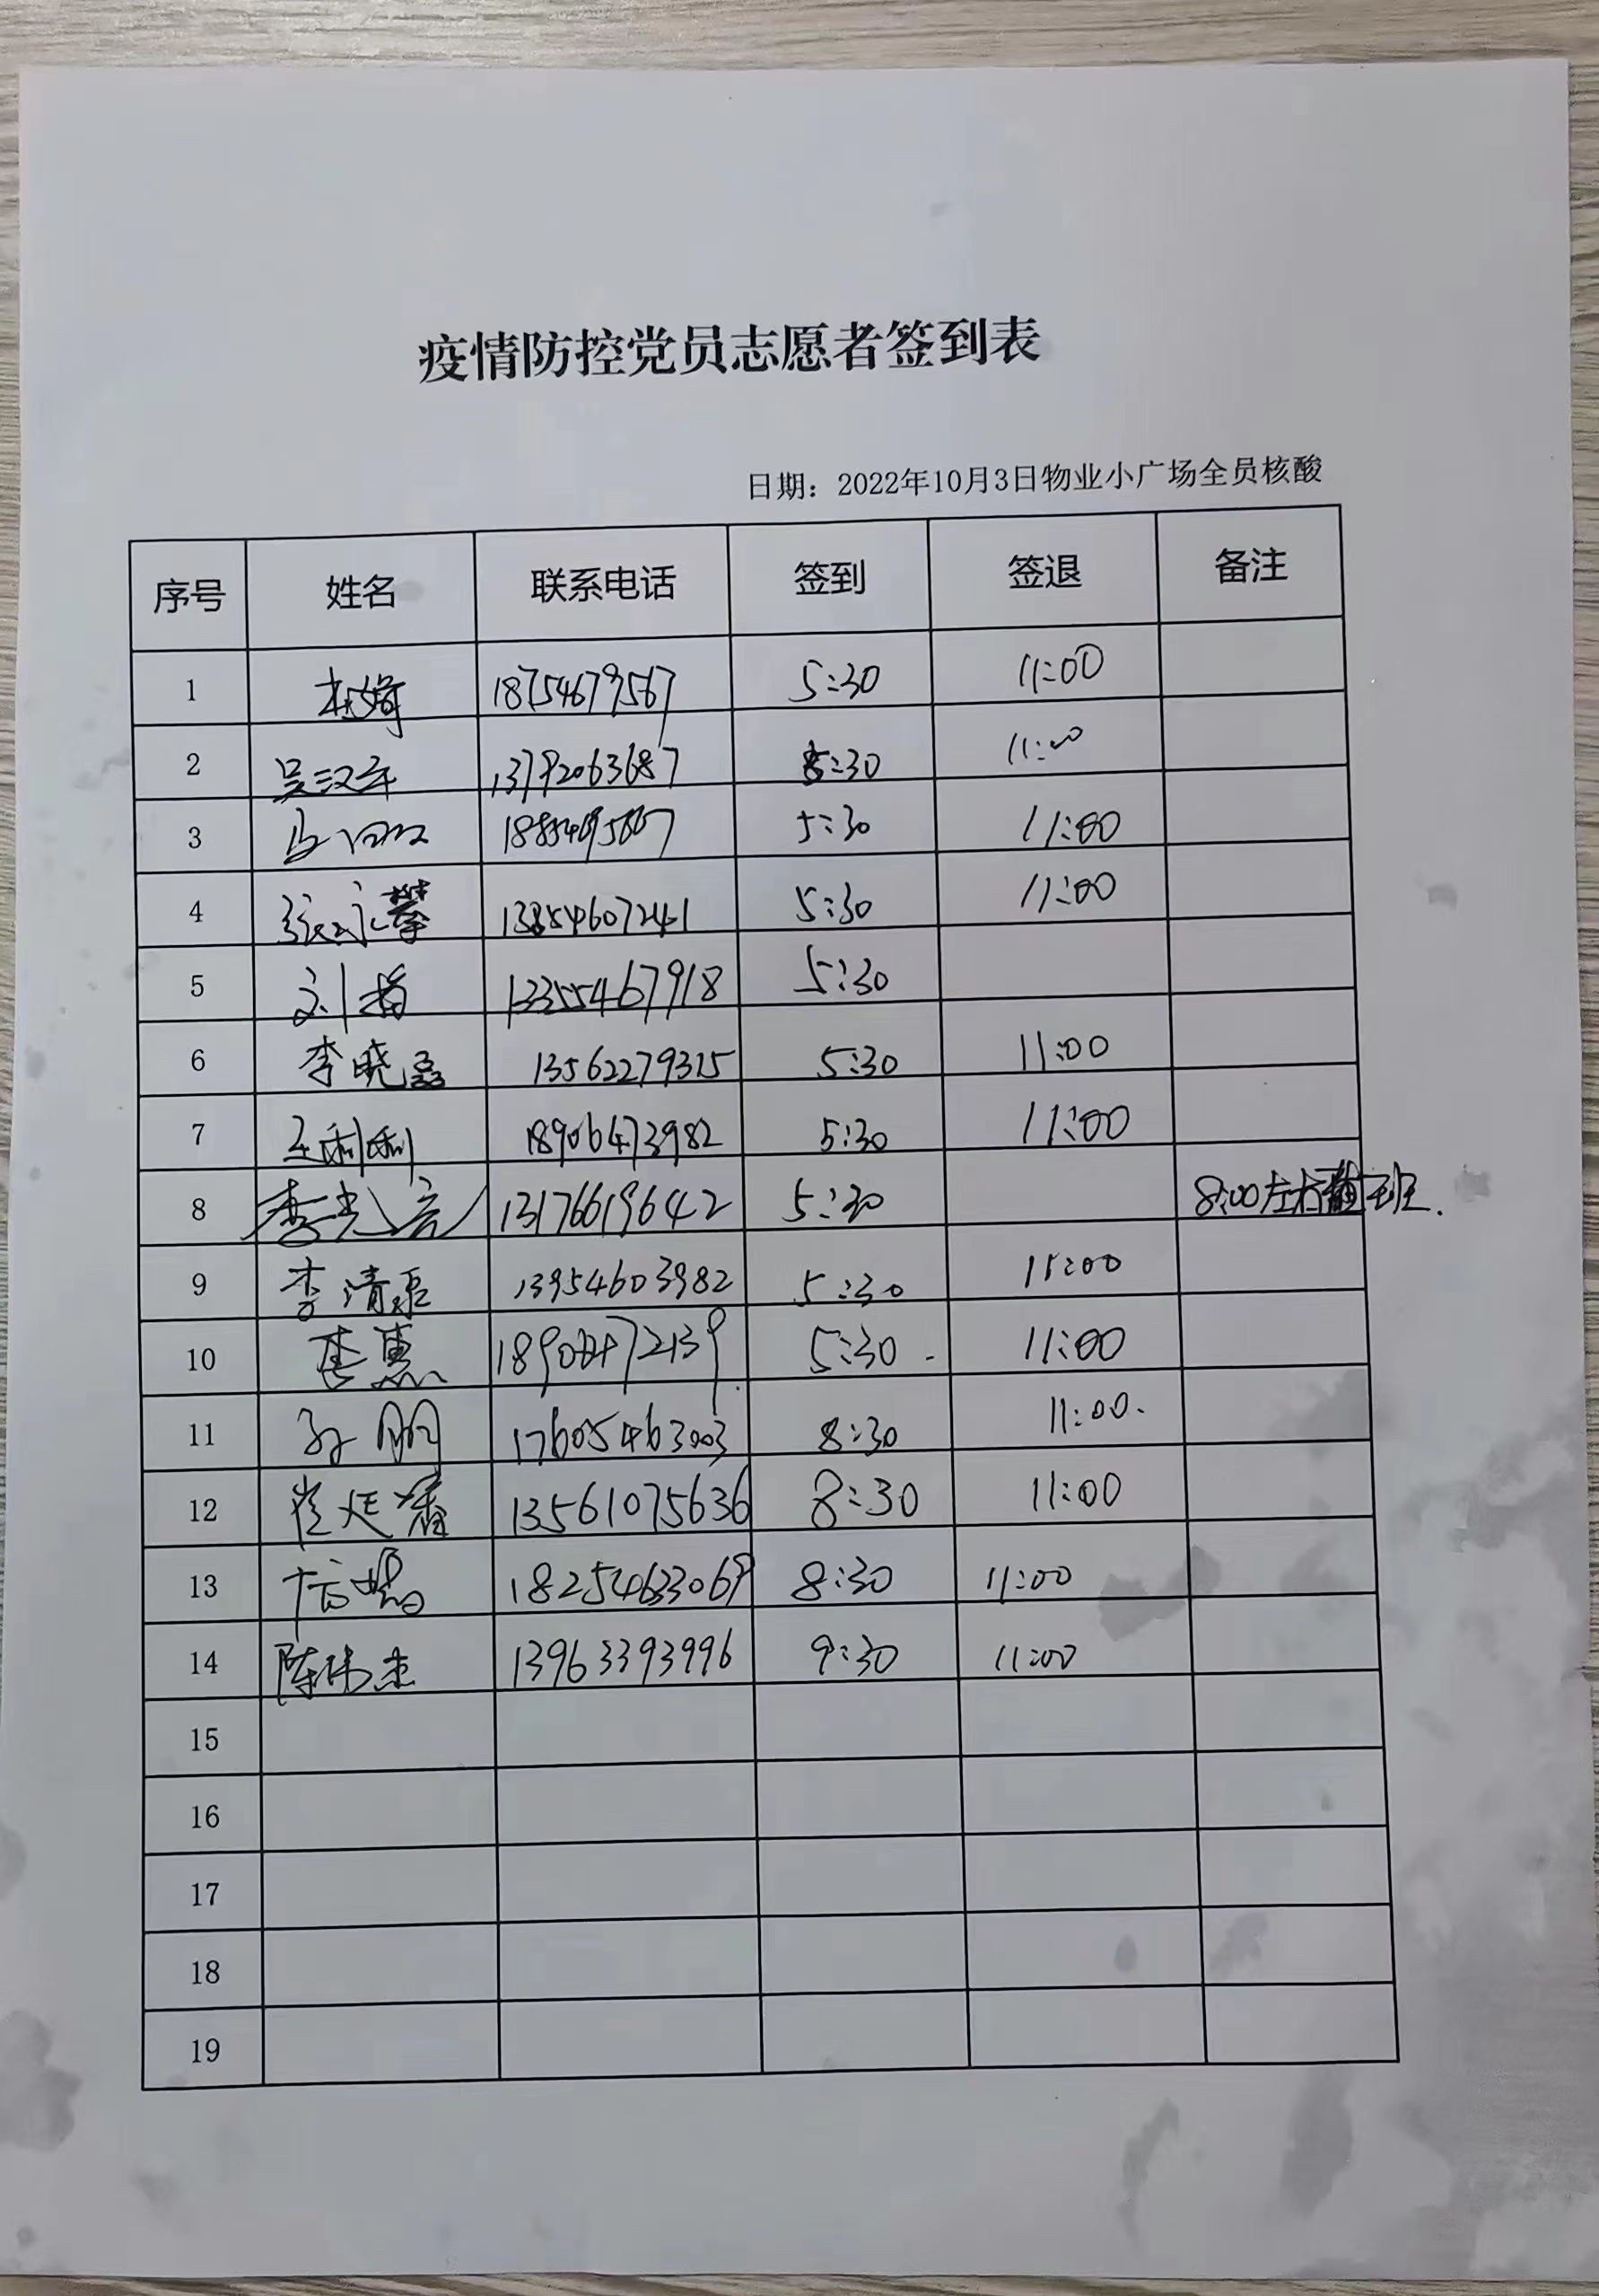 疫情防控党员志愿者签到表
日期：2022年10月3日物业小广场全员核酸
序号 姓名 联系电话 签到 签退 备注
1 18754679567 5:30 11:00
2 吴汉军 13792063687 5:30 11:00
3 5:30 11:00
4 张永攀 13854607241 5:30 11:00
5 刘 13355467918 5:30
6 李晓磊 13562279315 5:30 11:00
7 王利利 18906473982 5:30 11:00
8 李光 13176619642 5:30 8:00左右 上班.
9 李清臣 13954603982 5:30 11:00
10 李惠 5:30 11:00
11 孙朋 17605463003 8:30 11:00.
12 崔廷 13561075636 8:30 11:00
13 18254633069 8:30 11:00
14 陈伟杰 13963393996 9:30 11:00
15
16
17
18
19